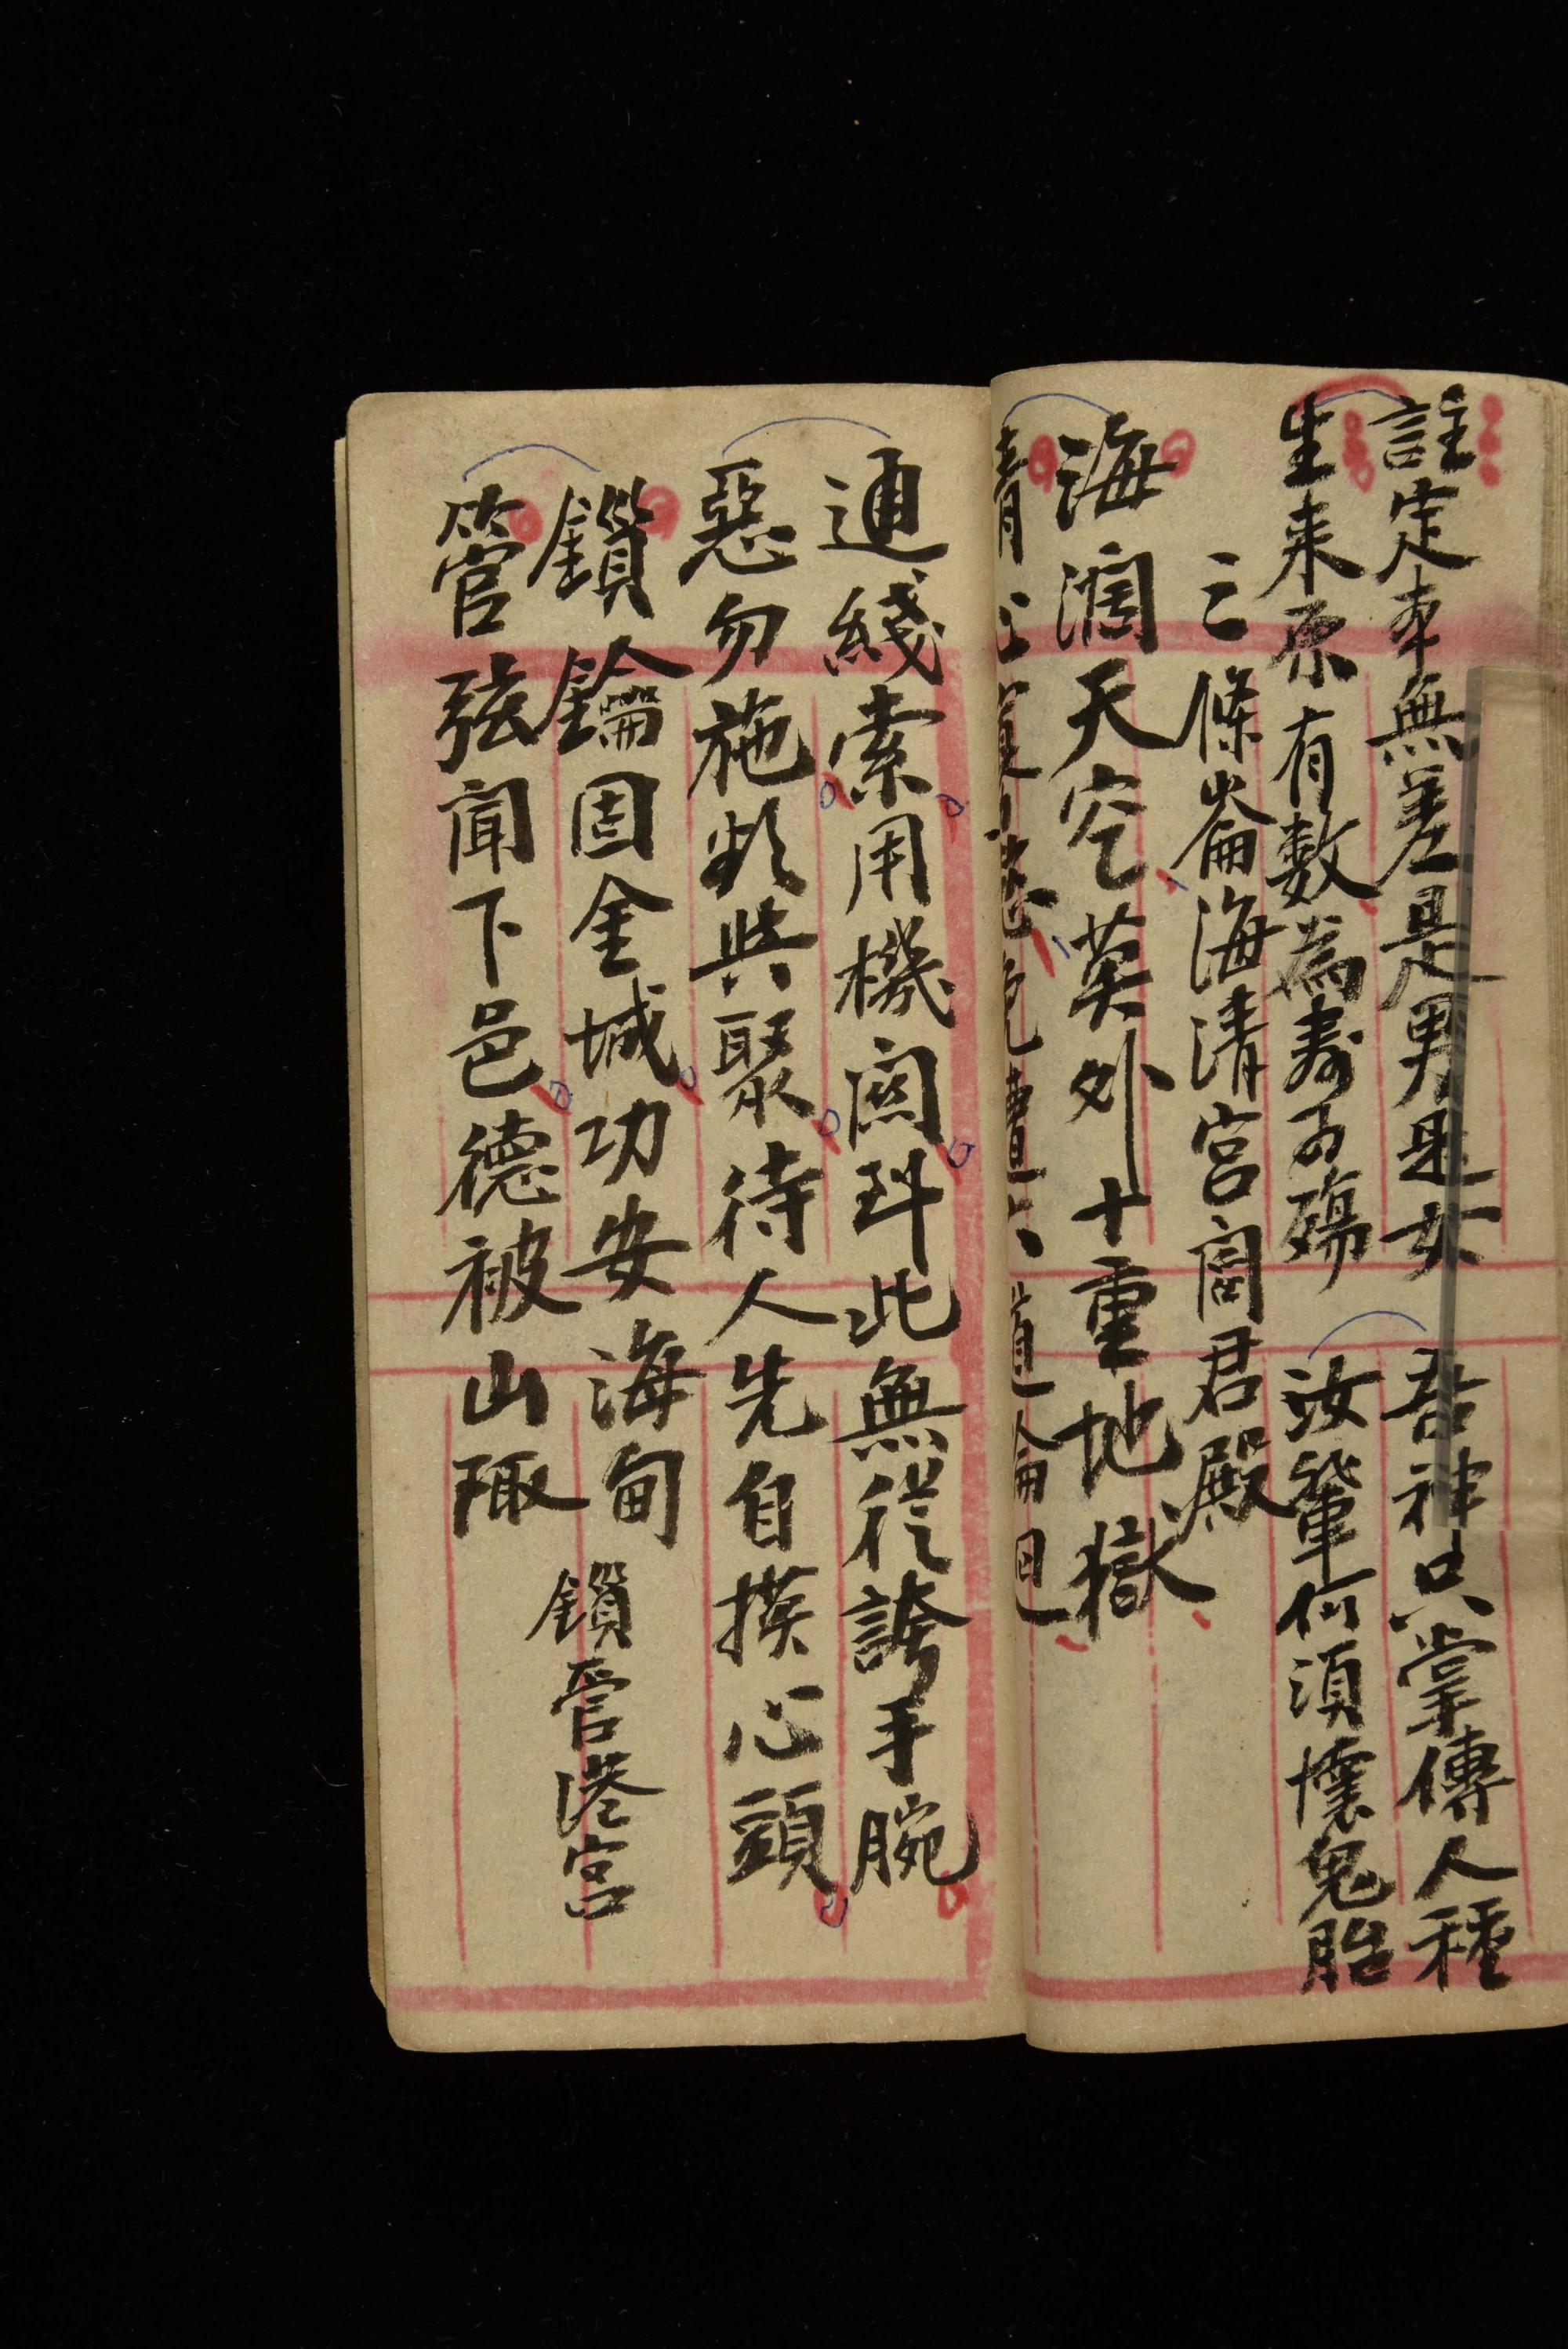 註定本無差是男是女　吾神只掌傳人種
生来原有數為壽為殤　汝輩何須懷鬼胎
三條崙海清宮閻君殿
海濶天空莫外十重地獄
清 道論迴
通綫索用機關到此無從誇手腕
惡勿施欲與聚待人先自摸心頭
鎖鑰固金城功安海甸
鎖管港宮
管弦聞下邑德被山陬